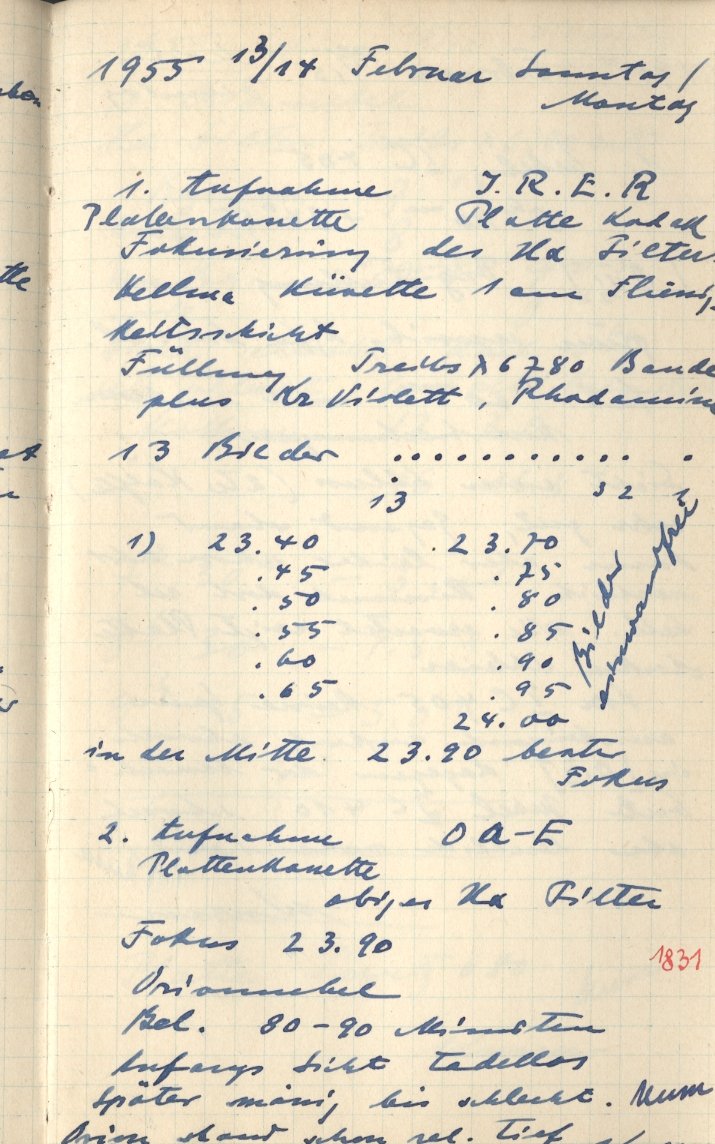 1955 13/14 Februar Sonntag /
Montag
1. Aufnahme I.R.E.R
Plattenkasette Platte Kodak
Fokusierung des Hα Filters
Hellma Küvette 1 cm Flüssig-
keitsschicht
Füllung Treibs λ 6780 Bande
plus Kr Violett, Rhodamin
13 Bilder . . . . . . . . . . . . .
13 3 2 1
1) 23.40 23.70
.45 .75
.50 .80
.55 .85
.60 .90
.65 .95
24.00
Bilder
einwandfrei
in der Mitte. 23.90 bester
Fokus
2. Aufnahme O a-E
Plattenkasette
obiger Hα Filter
Fokus 23.90
1831
Orionnebel
Bel. 80-90 Minuten
Anfangs Sicht tadellos
Später mässig bis schlecht.
Orion stand schon rel. tief